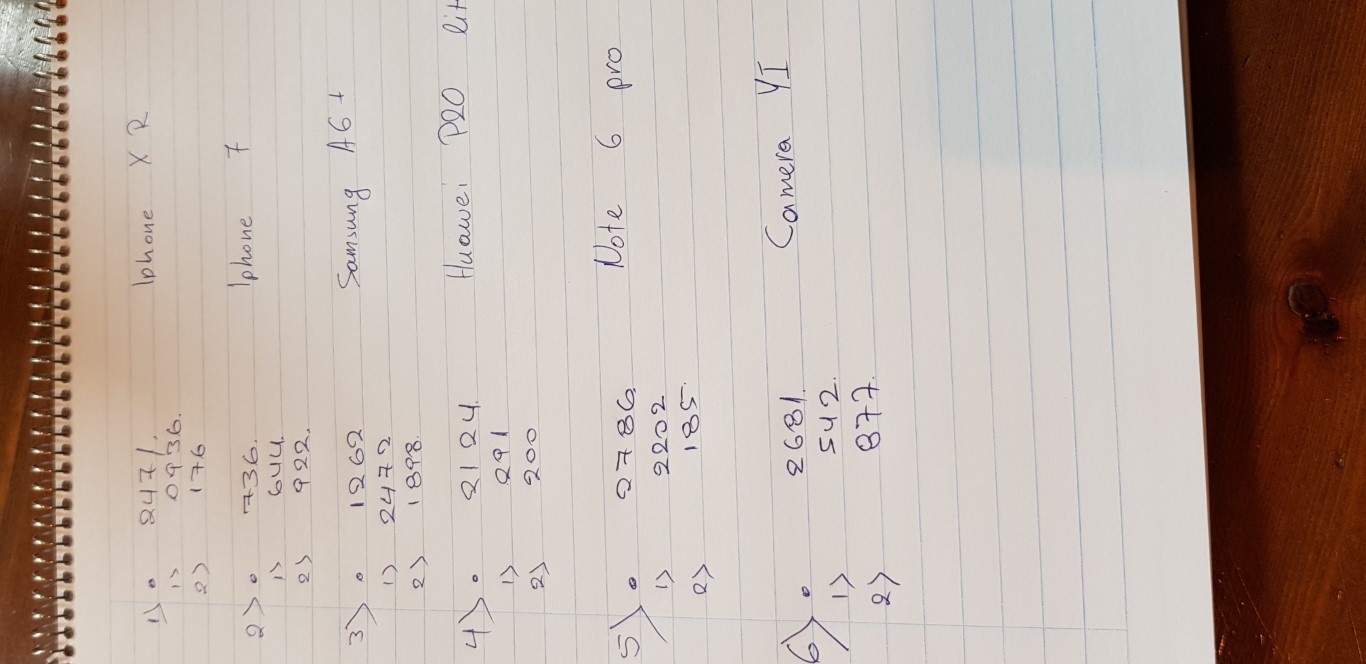 1) • 2471. Iphone XR
1) 0936.
2) 176
2) • 736. Iphone 7
1) 644.
2) 922.
3) • 1262 Samsung A6+
1) 2472
2) 1898.
4) • 2124. Huawei P20 lit
1) 291
2) 200
5) • 2786. Note 6 pro
1) 2202
2) 185.
6) • 2681. Camera YI
1) 542.
2) 877.